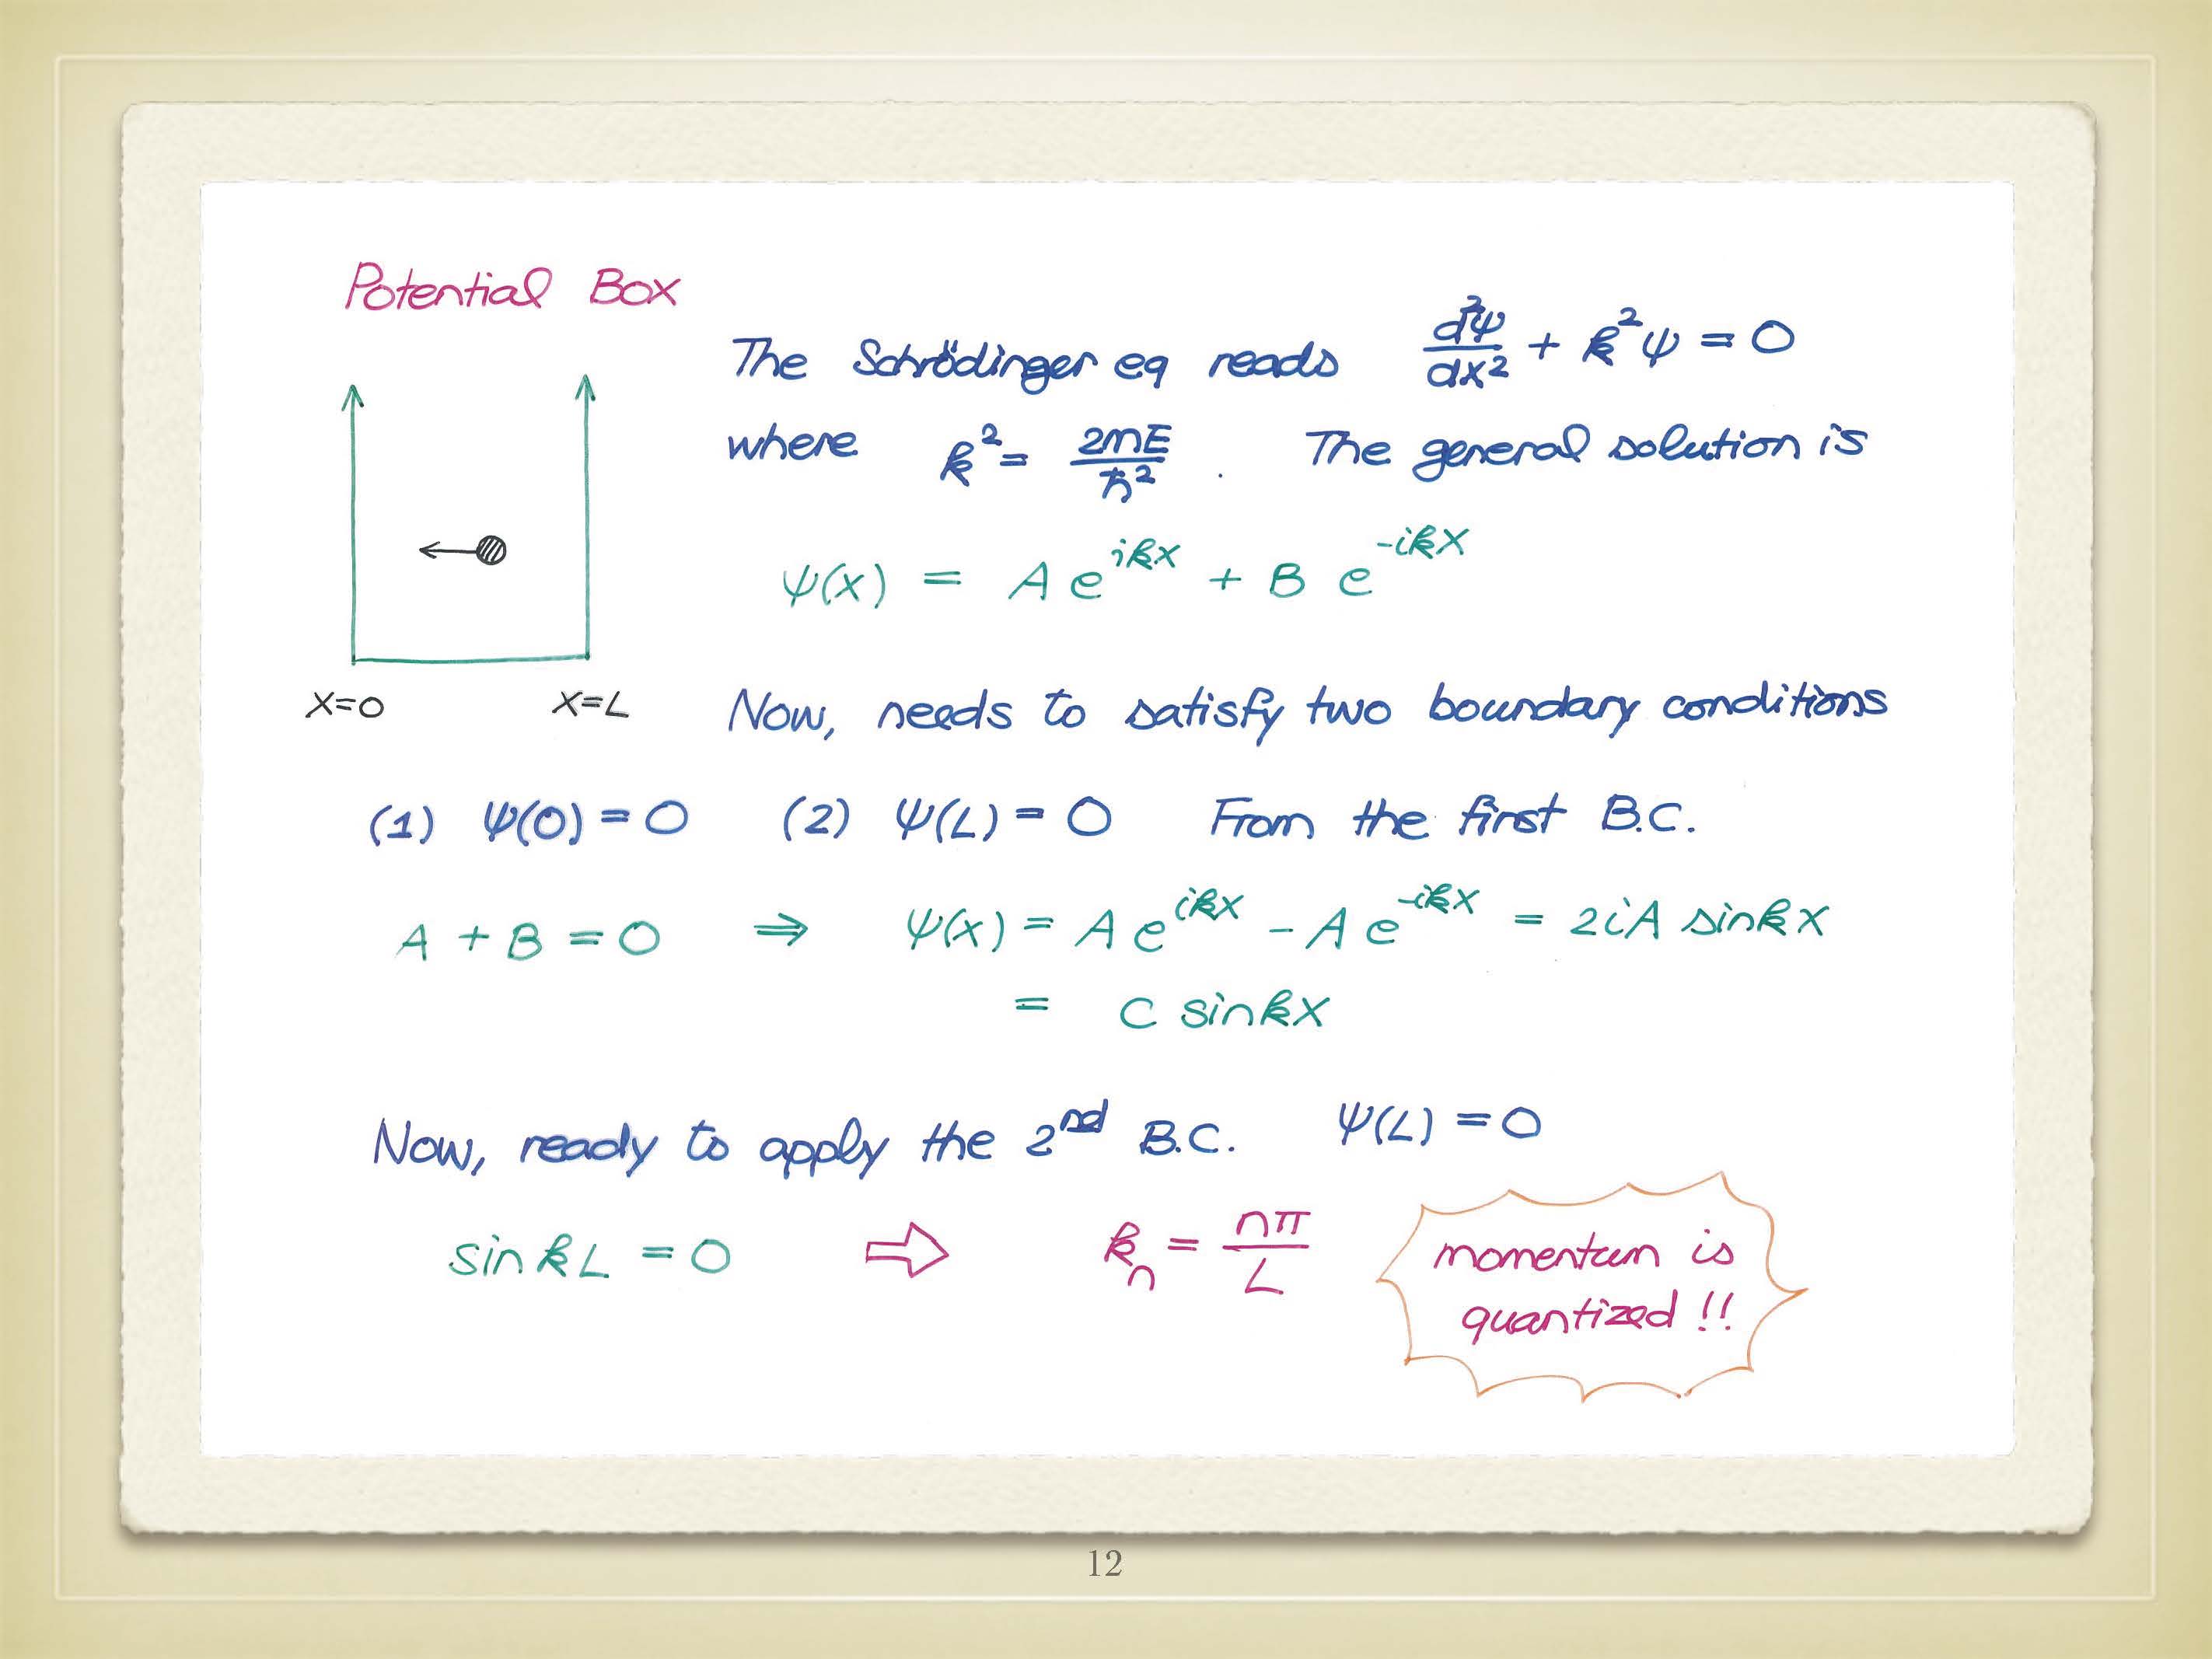 Potential Box
The Schrödinger eq reads d²ψ/dx² + k²ψ = 0
where k² = 2mE/ħ² . The general solution is
ψ(x) = A e^{ikx} + B e^{-ikx}
x=0 x=L
Now, needs to satisfy two boundary conditions
(1) ψ(0) = 0 (2) ψ(L) = 0 From the first B.C.
A + B = 0 ⇒ ψ(x) = A e^{ikx} - A e^{-ikx} = 2iA sinkx
= C sinkx
Now, ready to apply the 2nd B.C. ψ(L) = 0
sinkL = 0 ⇨ kₙ = nπ/L
momentum is
quantized !!
12